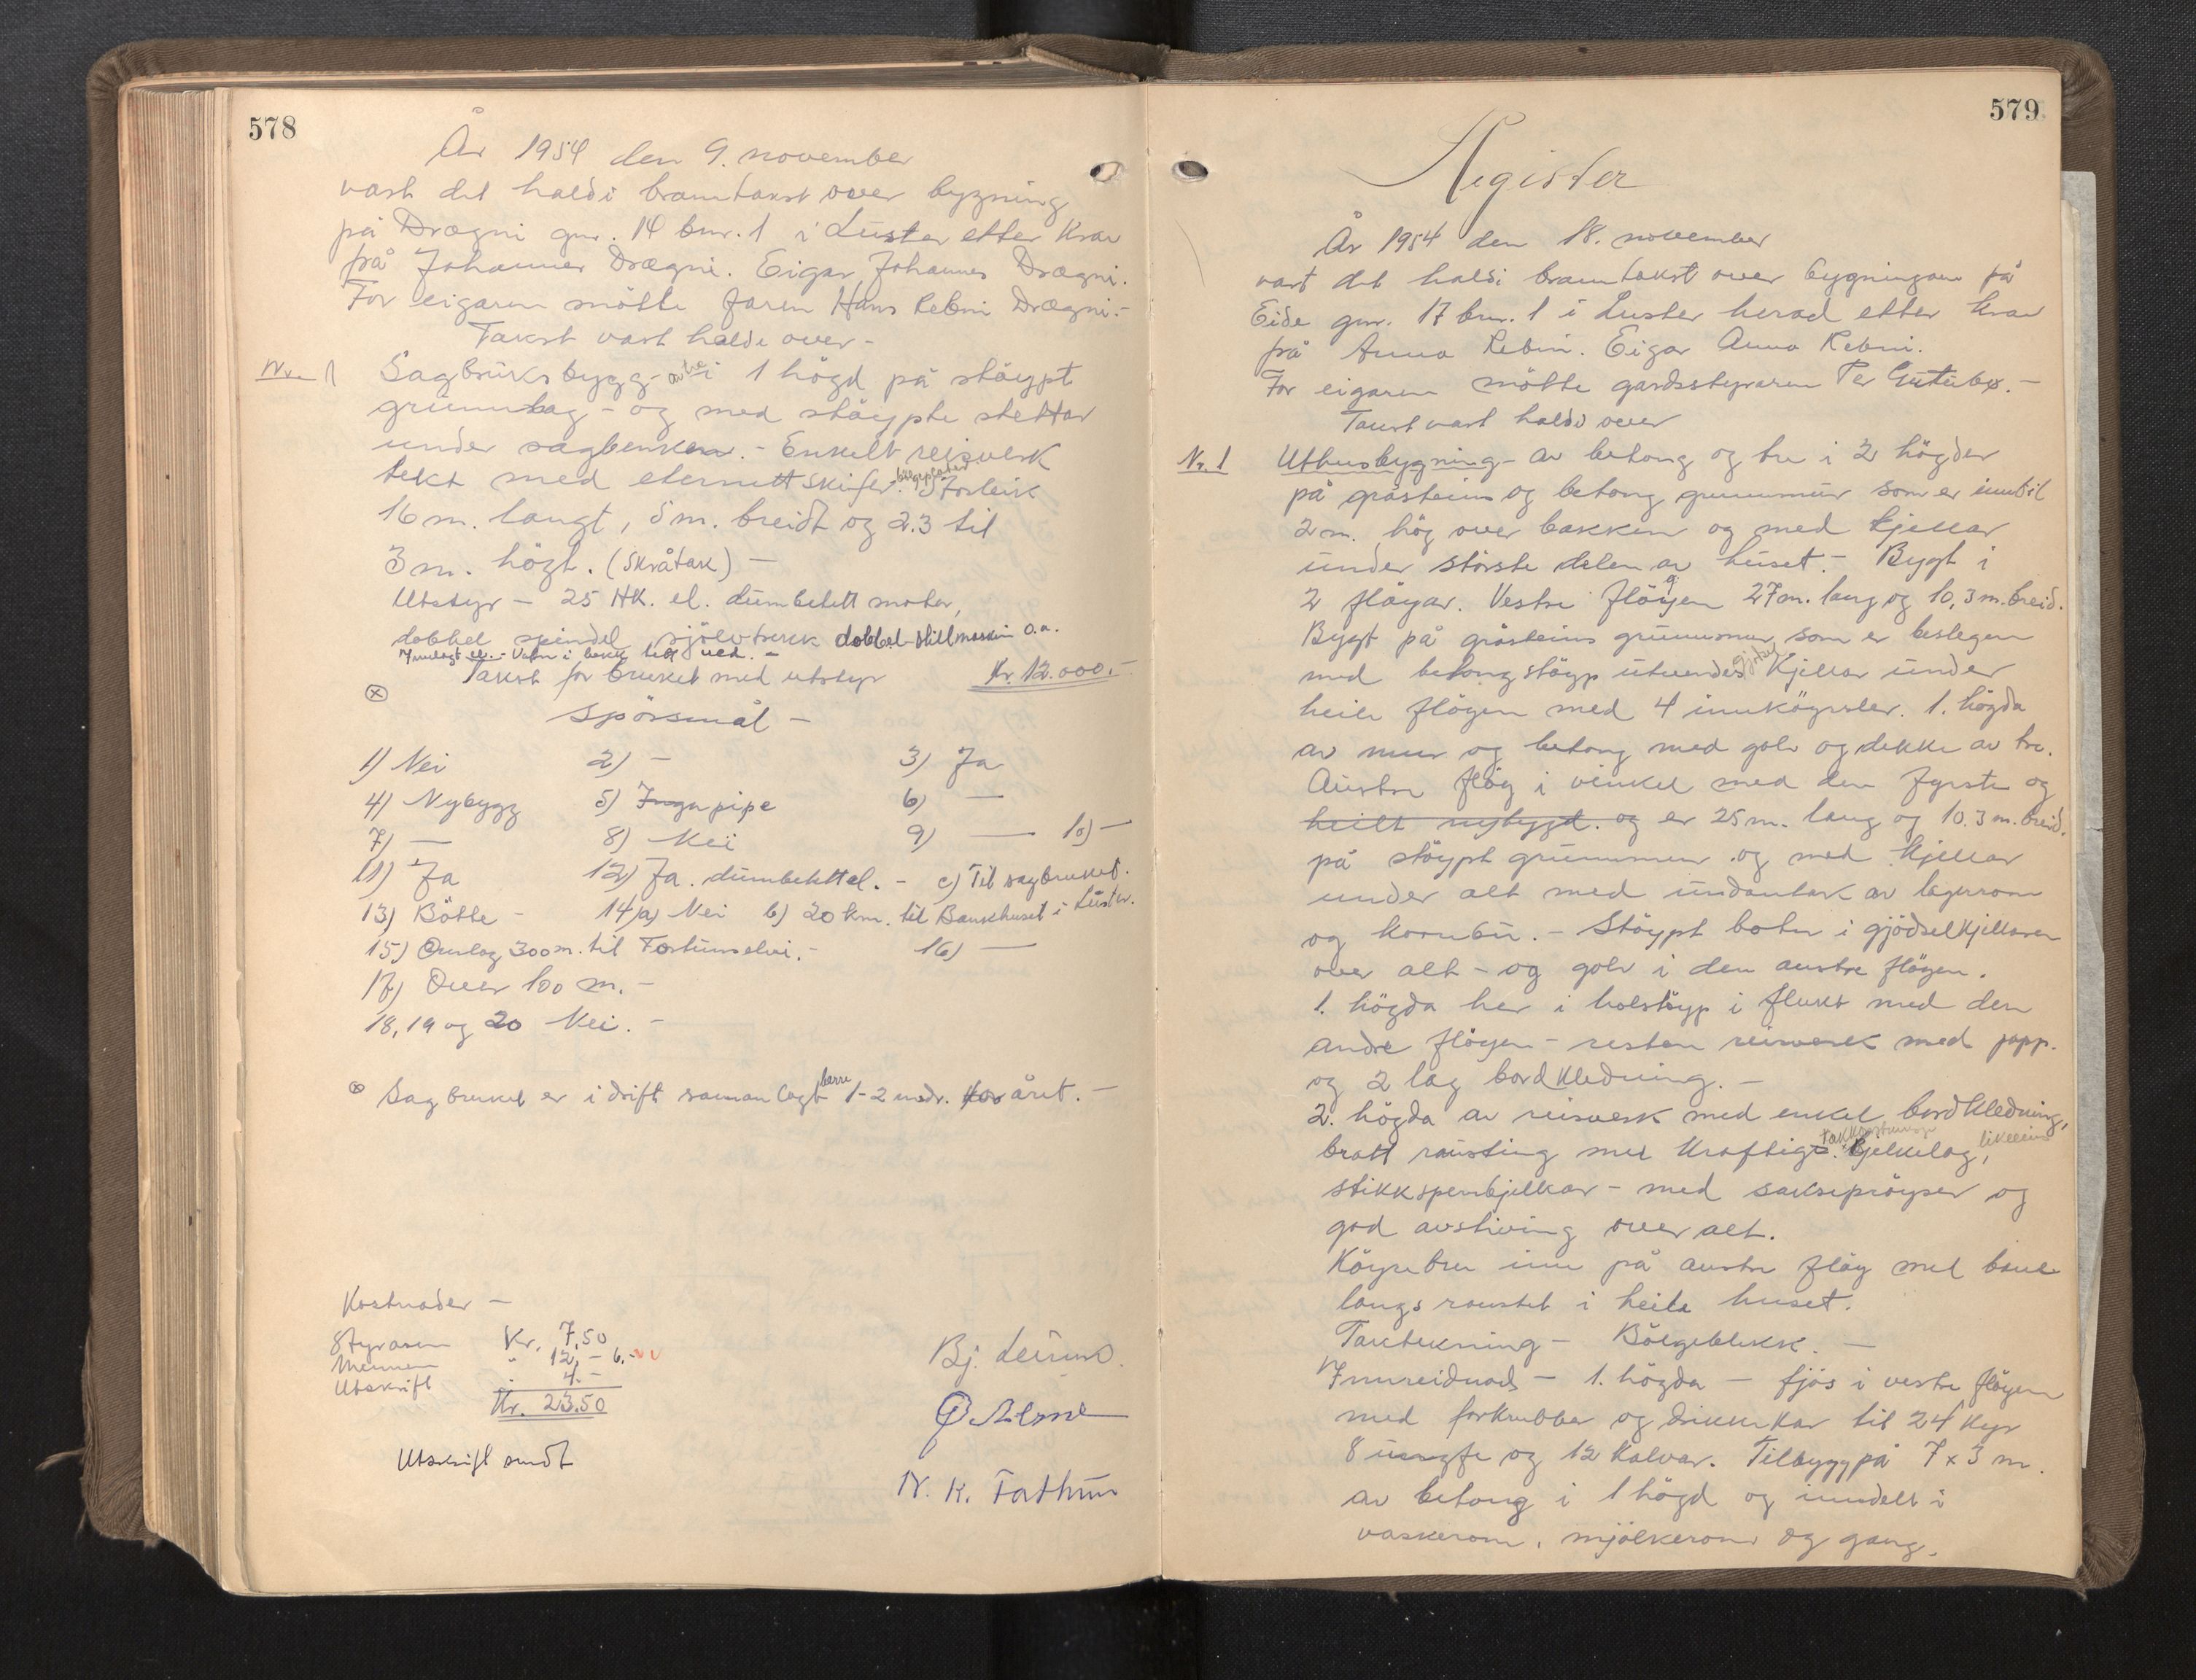 578
År 1954 den 9. november
vart det haldi branntakst over bygning
på Drægni gnr. 14 bnr. 1 i Luster etter krav
frå Johannes Drægni. Eigar Johannes Drægni.
For eigaren mötte faren Hans Rebni Drægni.-
Takst vart halde over-
Nr. 1 Sagbruksbygg- av tre i 1 högd på stöypt
grunnlag - og med stöypte stettar
under sagbenken. - Enkelt reisverk
tekt med eternittskifer. bölgeplater Storleik
16 m. langt, 5 m. breidt og 2.3 til
3 m. högt. (skråtak) -
Utstyr - 25 HK. el. dumbelett motor,
dobbel spindel, sjölvtrekk dobbel stillmaskin o.a.
Innlagt el. - Vatn i bekk tett ved. -
Takst for bruket med utstyr Kr. 12.000.-
⊗
Spörsmål -
1) Nei 2) - 3) Ja
4) Nybygg 5) Inga pipe 6) -
7) - 8) Nei 9) - 10) -
11) Ja 12) Ja. dumbelett el. - c) Til sagbruket.
13) Bötte - 14) a) Nei b) 20 km. til Bankhuset i Luster.
15) Omlag 300 m. til Fortunselvi. - 16) -
17) Over 100 m. -
18, 19 og 20 Nei. -
⊗ Sagbruket er i drift samanlagt barre 1-2 mndr. for året. -
Kostnader -
Styraren Kr. 7,50
Mennene " 12,- 6,-
Utskrift " 4.-
Kr. 23.50
Utskrift sendt
Bj. Leirmo.
N. K. Forthun
579
Register
År 1954 den 18. november
vart det haldi branntakst over bygningane på
Eide gnr. 17 bnr. 1 i Luster herad etter krav
frå Anna Rebni. Eigar Anna Rebni.
For eigaren mötte gardsstyraren Per Gutubø. -
Takst vart haldi over
Nr. 1 Uthusbygning - av betong og tre i 2 högder
på gråsteins og betong grunnmur som er inntil
2 m. hög over bakken og med kjellar
under störste delen av huset. - Bygt i
2 flöyar. Vestre flöyen 27 m. lang og 10,3 m. breid.
Bygt på gråsteins grunnmur, som er beslegen
med betongstöyp utvendes gjödsel Kjellar under
heile flöyen med 4 innköyrsler. 1. högda
av mur og betong med golv og dekke av tre.
Austre flöy i vinkel med den fyrste og
heilt nybygd. og er 25 m. lang og 10.3 m. breid.
på stöypt grunnmur og med kjellar
under alt med undantak av lagerrom
og kornbu. - Stöypt botn i gjödselkjellaren
over alt - og golv i den austre flöyen.
1. högda her i holstöyp i flukt med den
andre flöyen - resten reisverk med papp.
og 2 lag bordkledning. -
2. högda av reisverk med enkel bordkledning,
bratt rausting med kraftige bjelkelag, likeeins
stikkspenbjelkar - med sakseprøyser og
god avstiving over alt.
Köyrebru inn på austre flöy med bane
langs raustet i heile huset.
Taktekning - Bölgeblekk. -
Innreidnad - 1. högda - fjös i vestre flöyen
med forkrubber og drikkekar til 24 kyr
8 ungfe og 12 kalvar. Tilbygg på 7 x 3 m.
av betong i 1 högd og inndelt i
vaskerom, mjölkerom og gang.